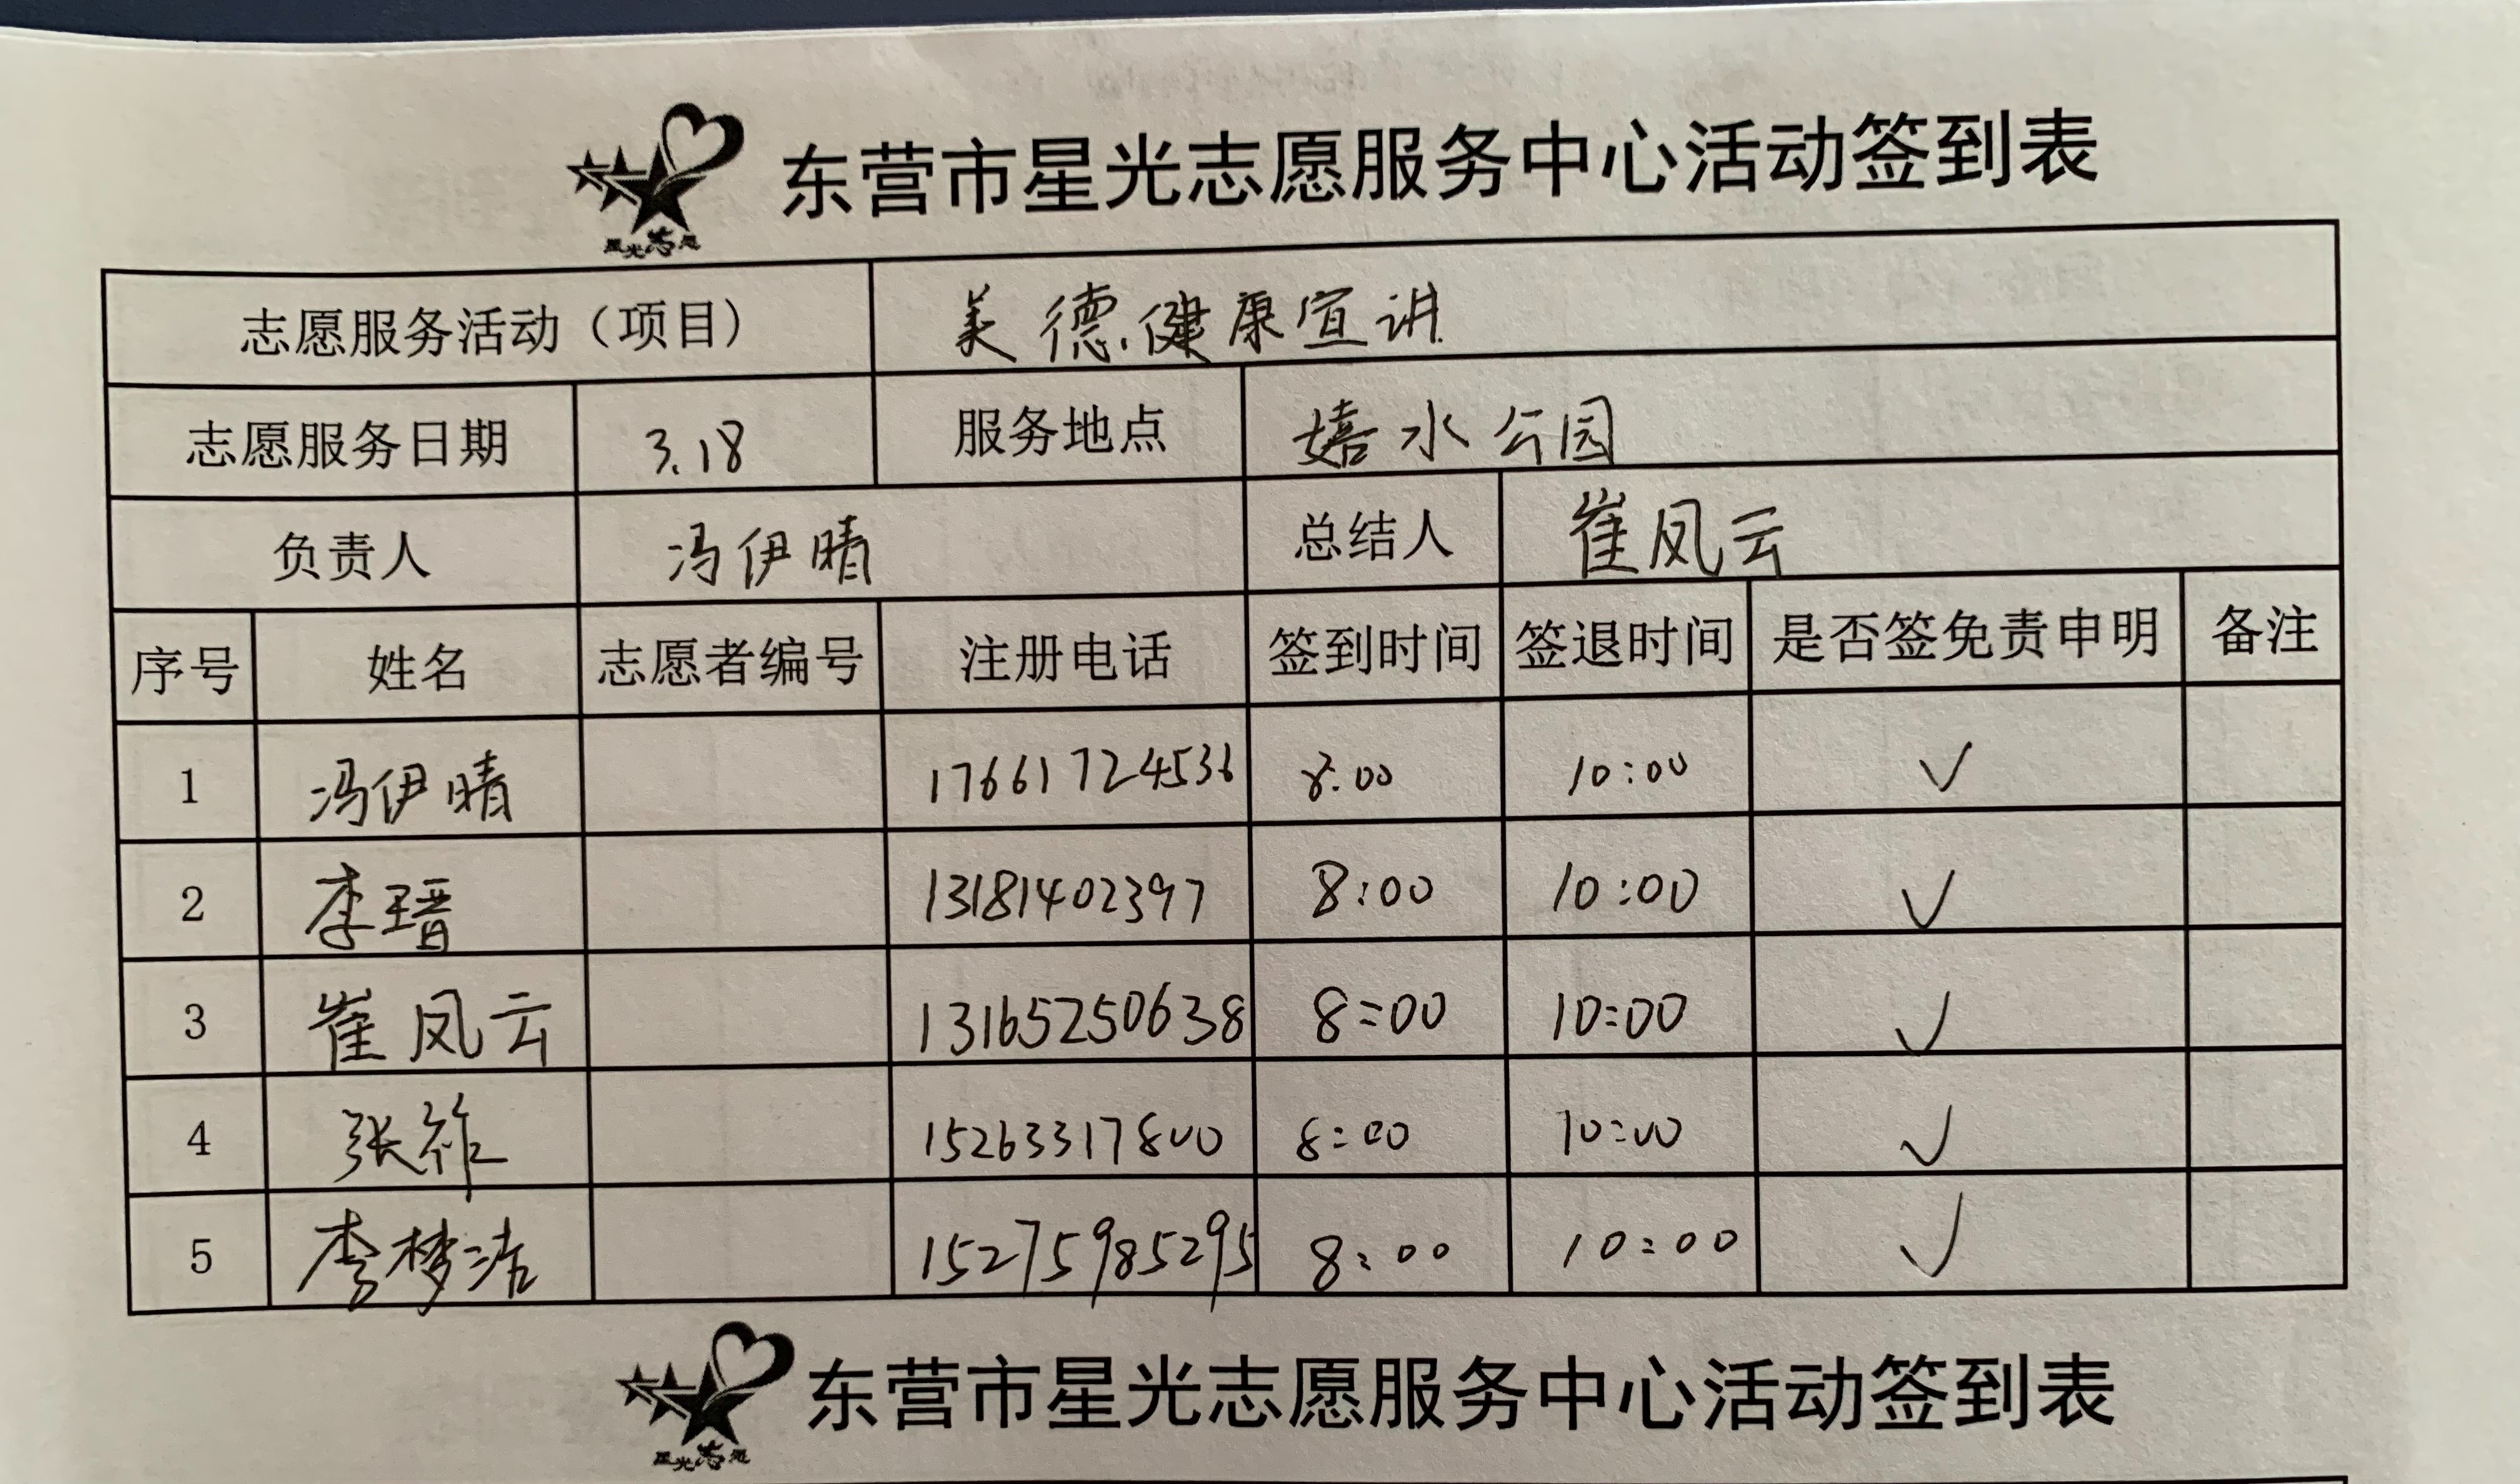 东营市星光志愿服务中心活动签到表
星光志愿
志愿服务活动（项目） 美德健康宣讲
志愿服务日期 3.18 服务地点 嬉水公园
负责人 冯伊晴 总结人 崔凤云
序号 姓名 志愿者编号 注册电话 签到时间 签退时间 是否签免责申明 备注
1 冯伊晴 17661724536 8:00 10:00 ✓
2 李瑨 13181402397 8:00 10:00 ✓
3 崔凤云 13165250638 8:00 10:00 ✓
4 张 15263317800 8:00 10:00 ✓
5 李梦洁 15275985295 8:00 10:00 ✓
东营市星光志愿服务中心活动签到表
星光志愿